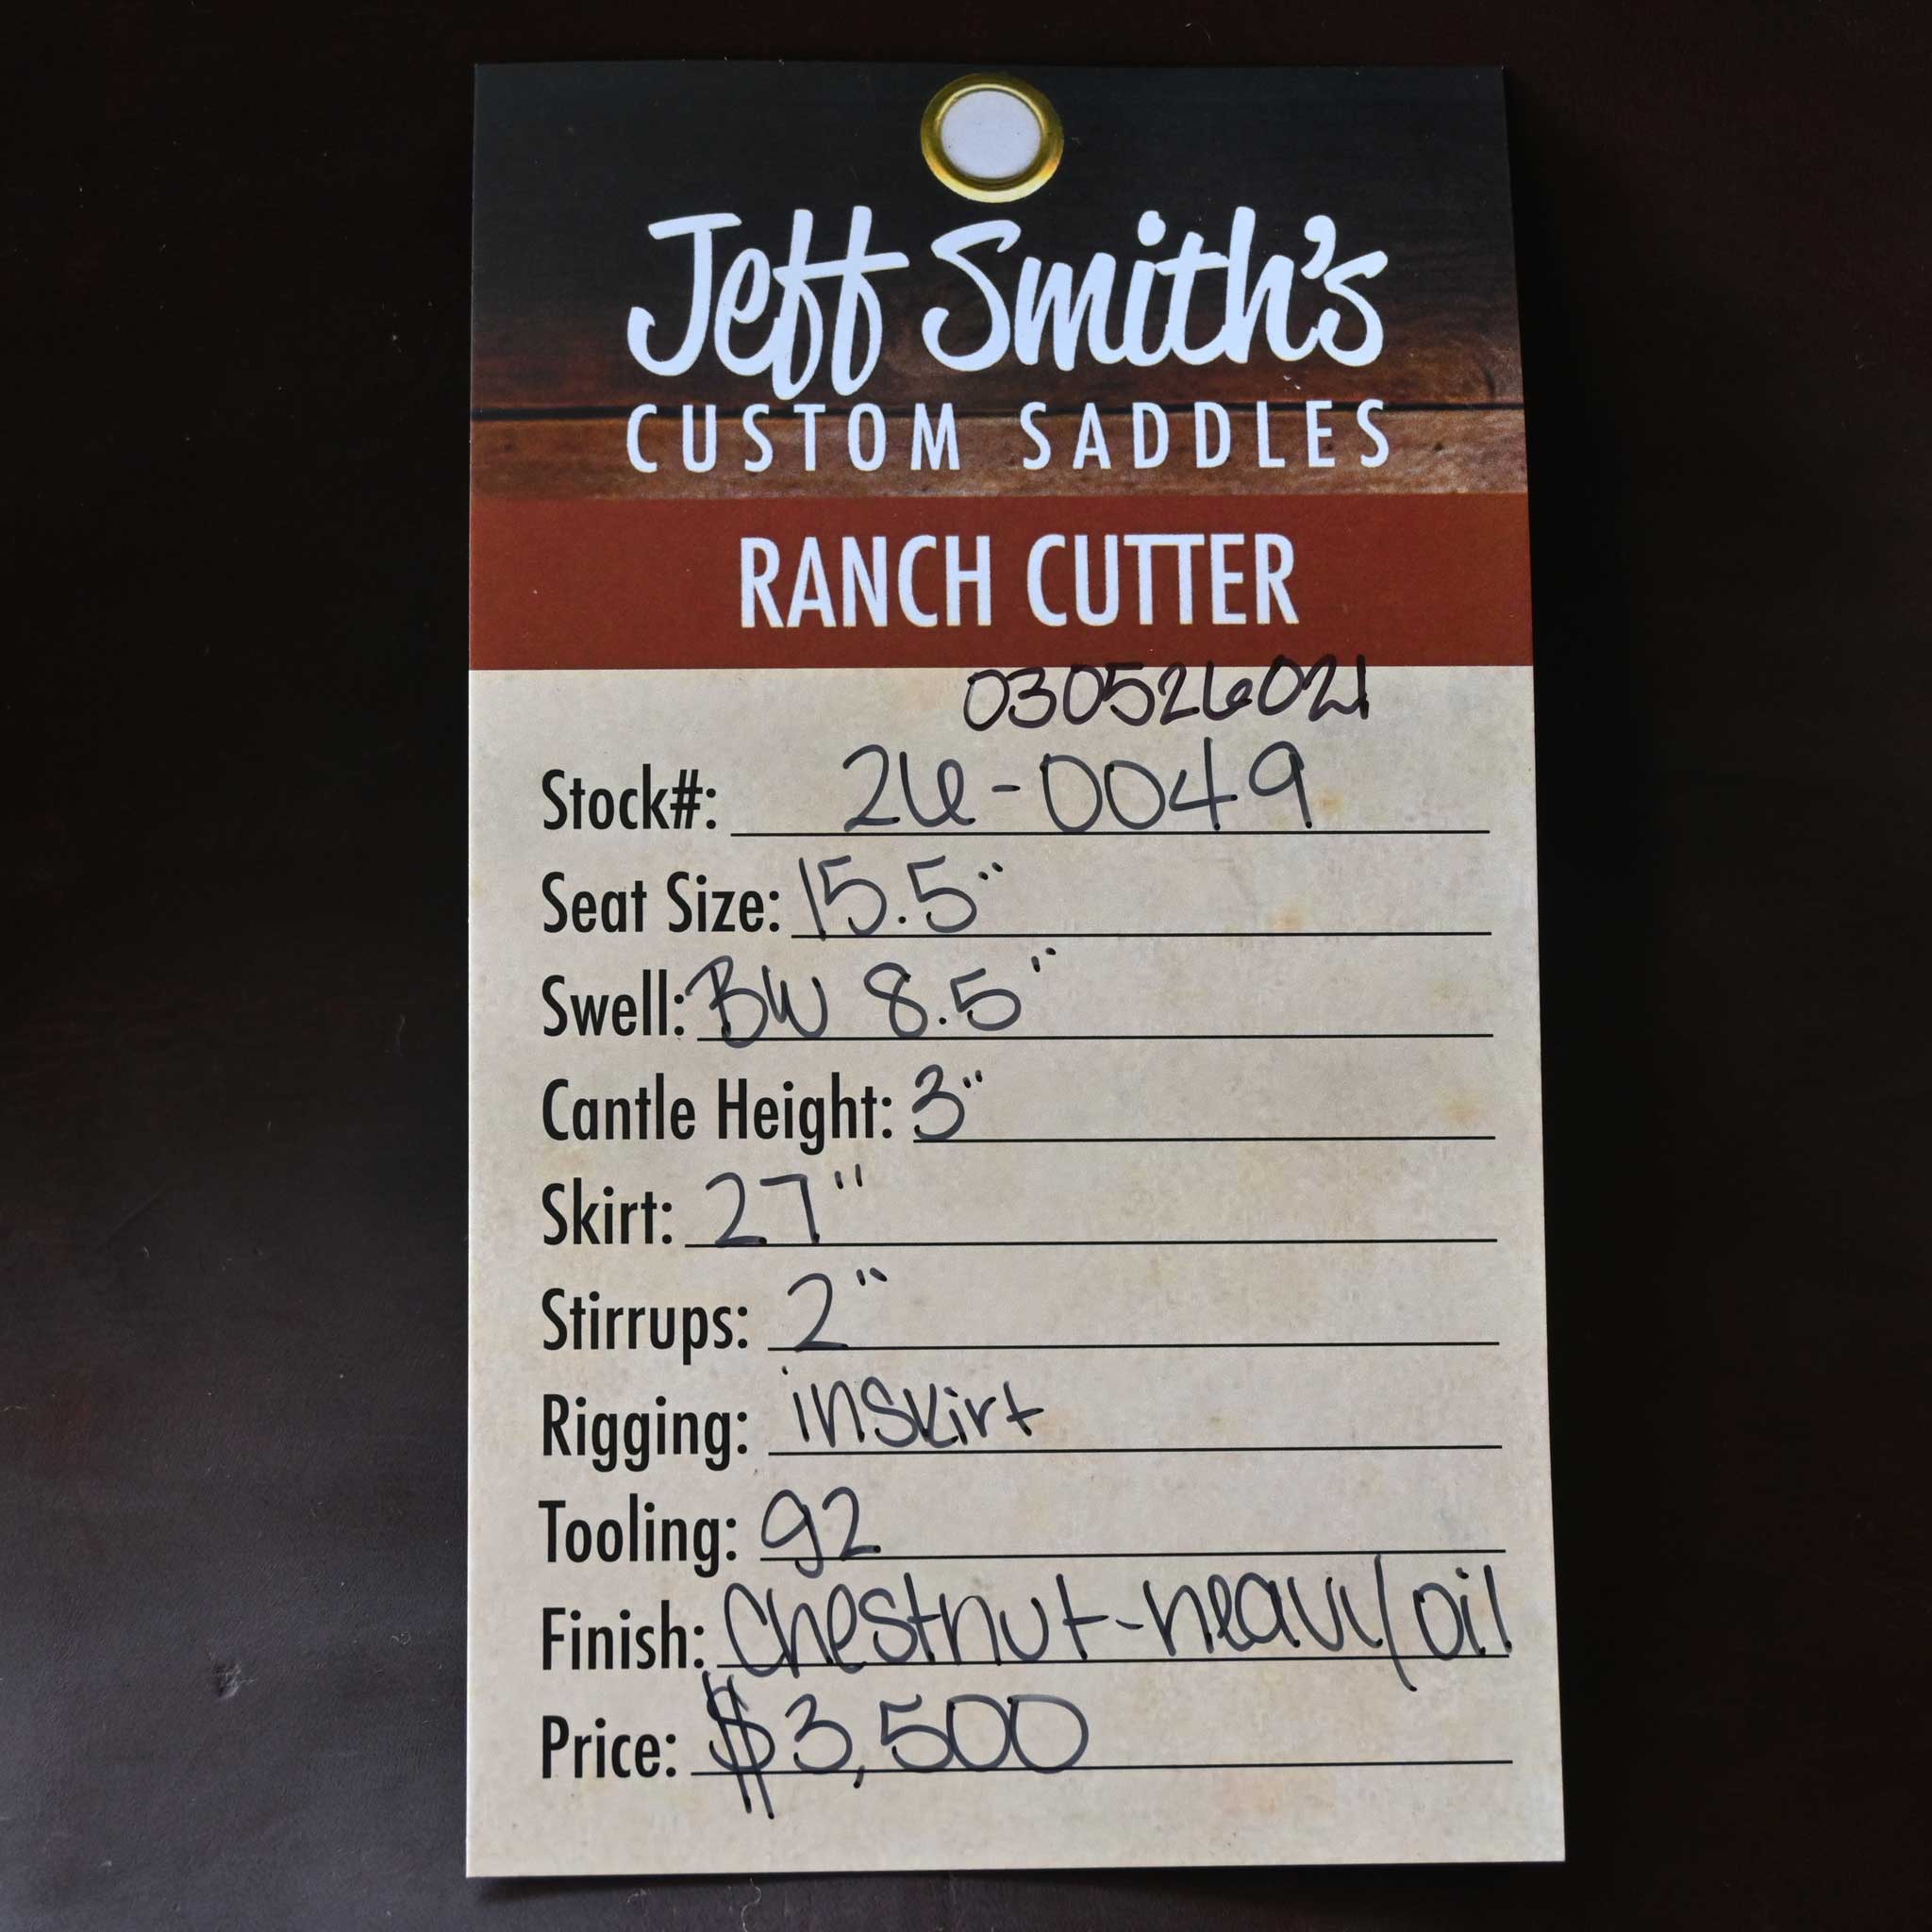 Jeff Smith's
CUSTOM SADDLES
RANCH CUTTER
030526021
Stock#: 26-0049
Seat Size: 15.5"
Swell: BW 8.5"
Cantle Height: 3"
Skirt: 27"
Stirrups: 2"
Rigging: inskirt
Tooling: g2
Finish: Chestnut-heavy oil
Price: $3,500